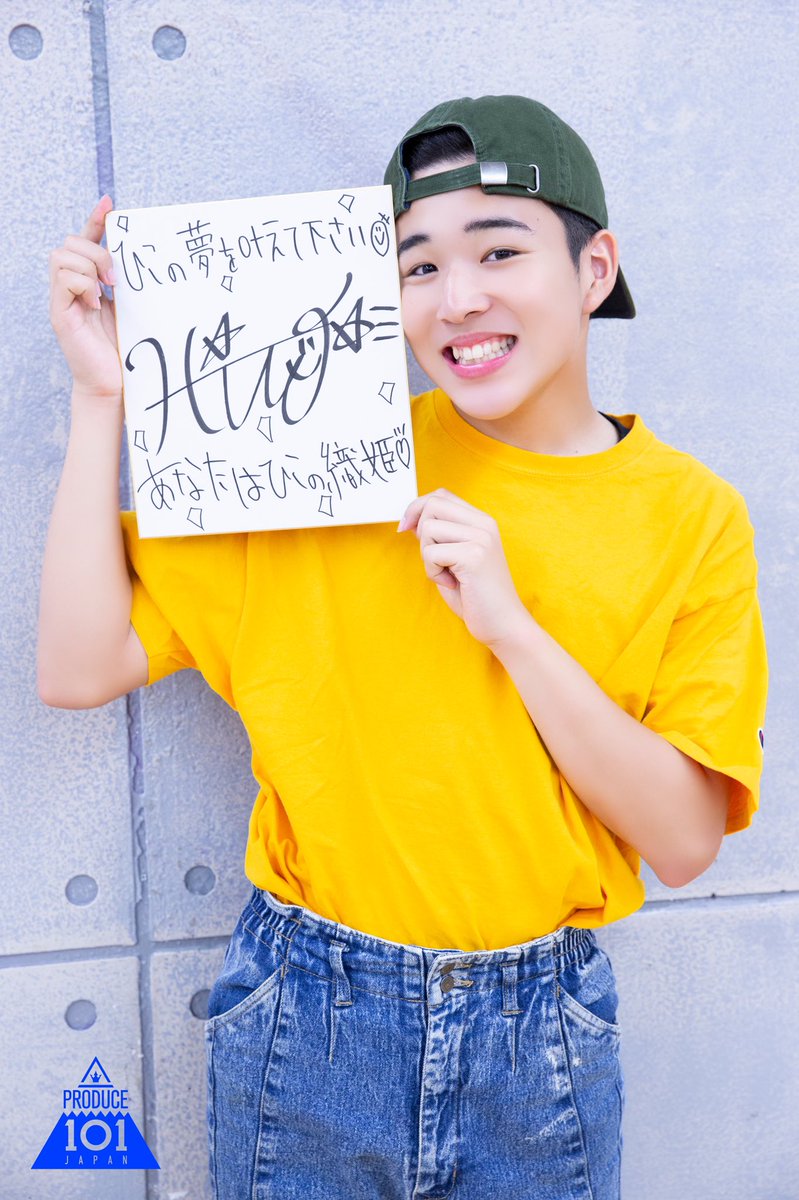 ひこの夢を叶えて下さい
あなたはひこの織姫♡
PRODUCE
101
JAPAN